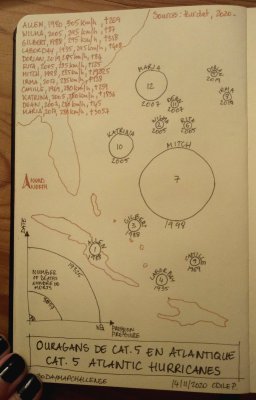 ALLEN, 1980, 305 km/h, +269
WILMA, 2005, 295 km/h, +87
GILBERT, 1988, 295 km/h, +318
LABOR DAY, 1935, 295 km/h, +408
DORIAN, 2019, 295 km/h, +84
RITA, 2005, 285 km/h, +125
MITCH, 1998, 285 km/h, +19325
IRMA, 2017, 285 km/h, +134
CAMILLE, 1969, 280 km/h, +259
KATRINA, 2005, 280 km/h, +1836
DEAN, 2007, 280 km/h, +45
MARIA, 2017, 280 km/h, +3057
Sources: 2020.
MARIA
12
2017
DEAN
2007
2019
IRMA
2017
WILMA
2
2005
RITA
6
2005
KATRINA
10
2005
MITCH
7
1998
GILBERT
3
1988
ALLEN
1
1980
CAMILLE
9
1969
LABOR DAY
4
1935
DATE
NUMBER
OF DEATHS
NOMBRE DE
MORTS
HB
PRESSION
PRESSURE
OURAGANS DE CAT. 5 EN ATLANTIQUE
CAT. 5 ATLANTIC HURRICANES
30DAYMAPCHALLENGE
4/11/2020